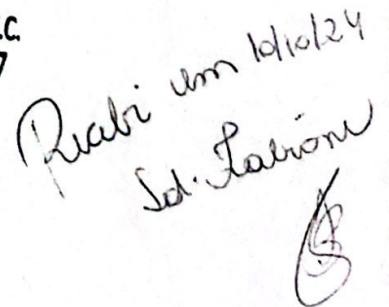 S.C.
7
Recebi em 10/10/24
Sd. Fabiane